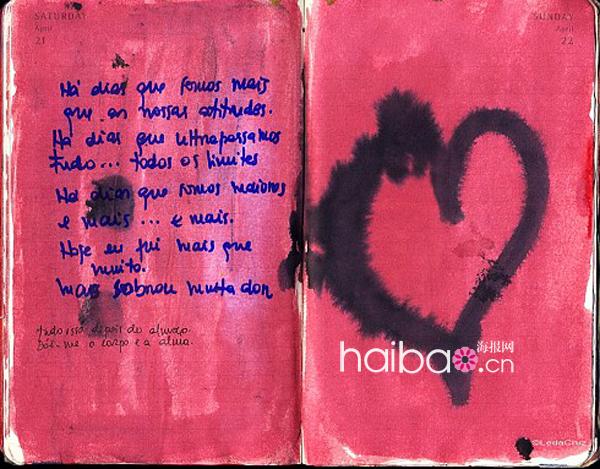 SATURDAY
April
21
Há dias que somos mais
que as nossas atitudes.
Há dias que ultrapassamos
tudo... todos os limites
Há dias que somos maiores
e mais ... e mais.
Hoje eu fui mais que
muito.
mas sobrou muita dor
tudo isso depois do almoço.
Dói-me o corpo e a alma.
SUNDAY
April
22
haibao.cn
海报网
©LedaCruz